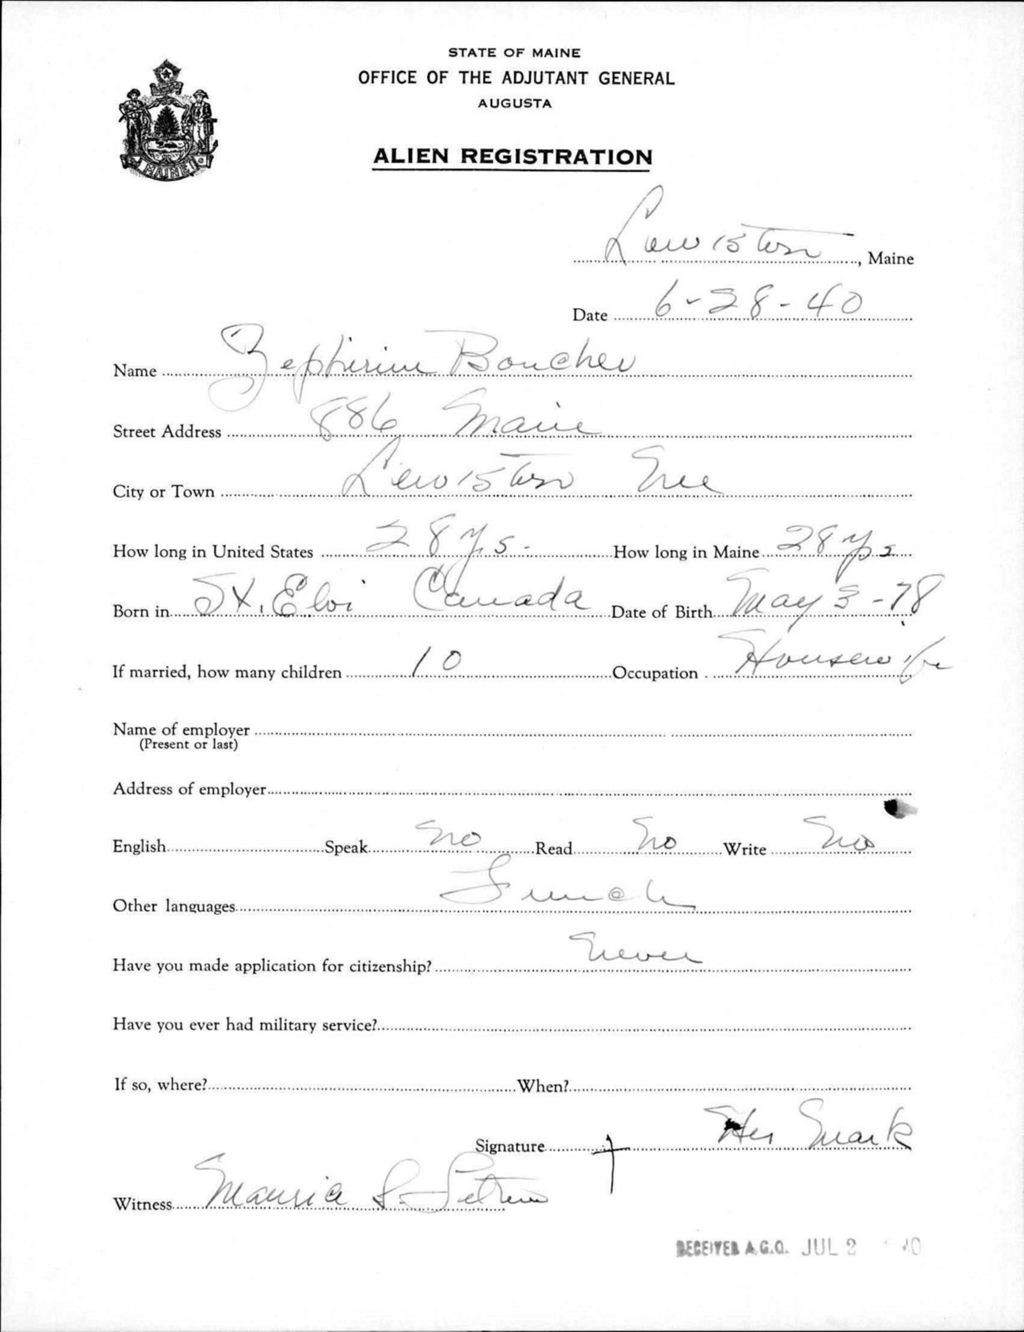 STATE OF MAINE
OFFICE OF THE ADJUTANT GENERAL
AUGUSTA
ALIEN REGISTRATION
MAINE
Lewiston, Maine
Date 6-28-40
Name Zephirine Boucher
Street Address 886 Maine
City or Town Lewiston Me
How long in United States 28 yrs. How long in Maine 28 yrs
Born in St. Eloi Canada Date of Birth May 3-78
If married, how many children 10 Occupation Housewife
Name of employer
(Present or last)
Address of employer
English Speak No Read No Write No
Other languages French
Have you made application for citizenship? Never
Have you ever had military service?
If so, where? When?
Signature Her Mark
Witness
RECEIVED A.G.O. JUL 2